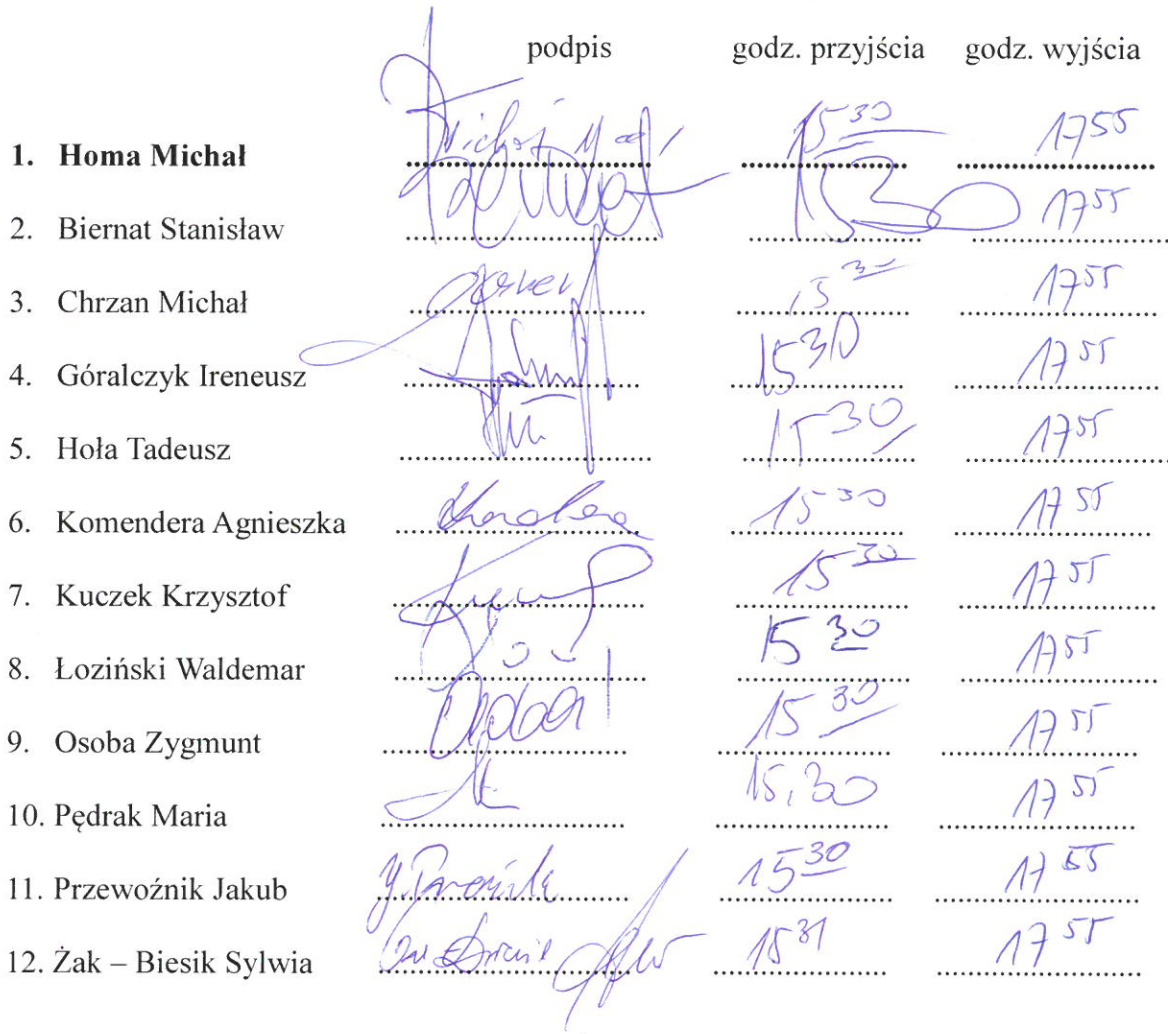 podpis godz. przyjścia godz. wyjścia
1. Homa Michał 15³⁰ 17⁵⁵
2. Biernat Stanisław 15³⁰ 17⁵⁵
3. Chrzan Michał 15³⁰ 17⁵⁵
4. Góralczyk Ireneusz 15³⁰ 17⁵⁵
5. Hoła Tadeusz 15³⁰ 17⁵⁵
6. Komendera Agnieszka 15³⁰ 17⁵⁵
7. Kuczek Krzysztof 15³⁰ 17⁵⁵
8. Łoziński Waldemar 15³⁰ 17⁵⁵
9. Osoba Zygmunt 15³⁰ 17⁵⁵
10. Pędrak Maria 15,30 17⁵⁵
11. Przewoźnik Jakub 15³⁰ 17⁵⁵
12. Żak – Biesik Sylwia 15³¹ 17⁵⁵